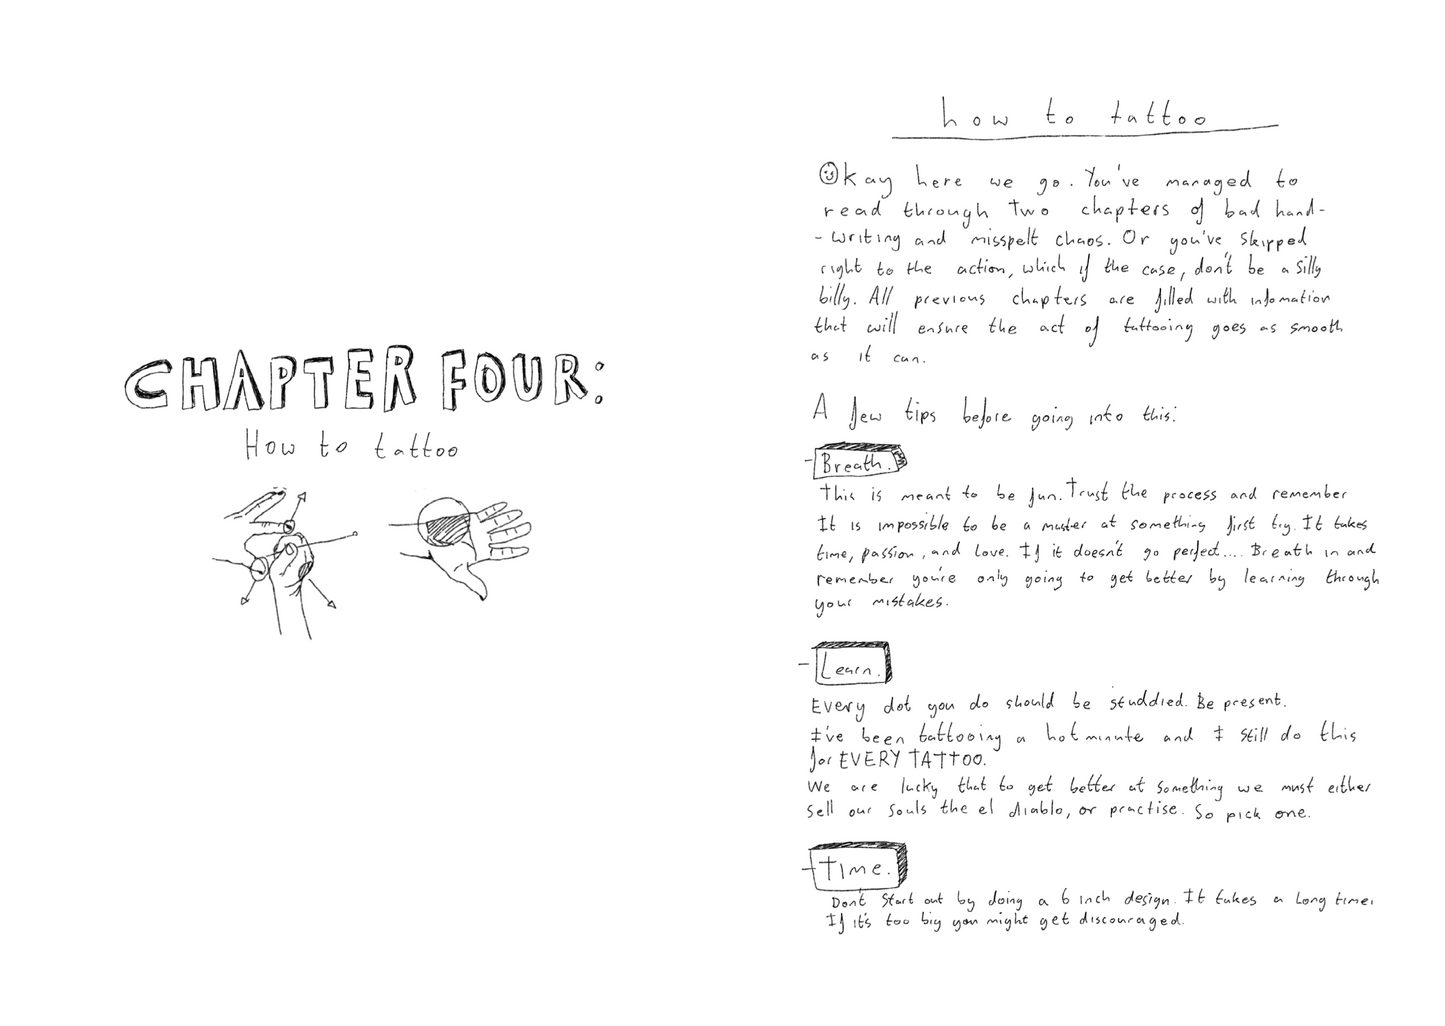 CHAPTER FOUR:
How to tattoo
how to tattoo
Okay here we go. You've managed to
read through two chapters of bad hand-
- writing and misspelt chaos. Or you've skipped
right to the action, which if the case, don't be a silly
billy. All previous chapters are filled with infomation
that will ensure the act of tattooing goes as smooth
as it can.
A few tips before going into this:
- Breath.
This is meant to be fun. Trust the process and remember
It is impossible to be a master at something first try. It takes
time, passion, and love. If it doesn't go perfect.... Breath in and
remember you're only going to get better by learning through
your mistakes.
- Learn.
Every dot you do should be studdied. Be present.
I've been tattooing a hot minute and I still do this
for EVERY TATTOO.
We are lucky that to get better at something we must either
sell our souls the el diablo, or practise. So pick one.
- Time.
Don't start out by doing a 6 inch design. It takes a long time.
If it's too big you might get discouraged.